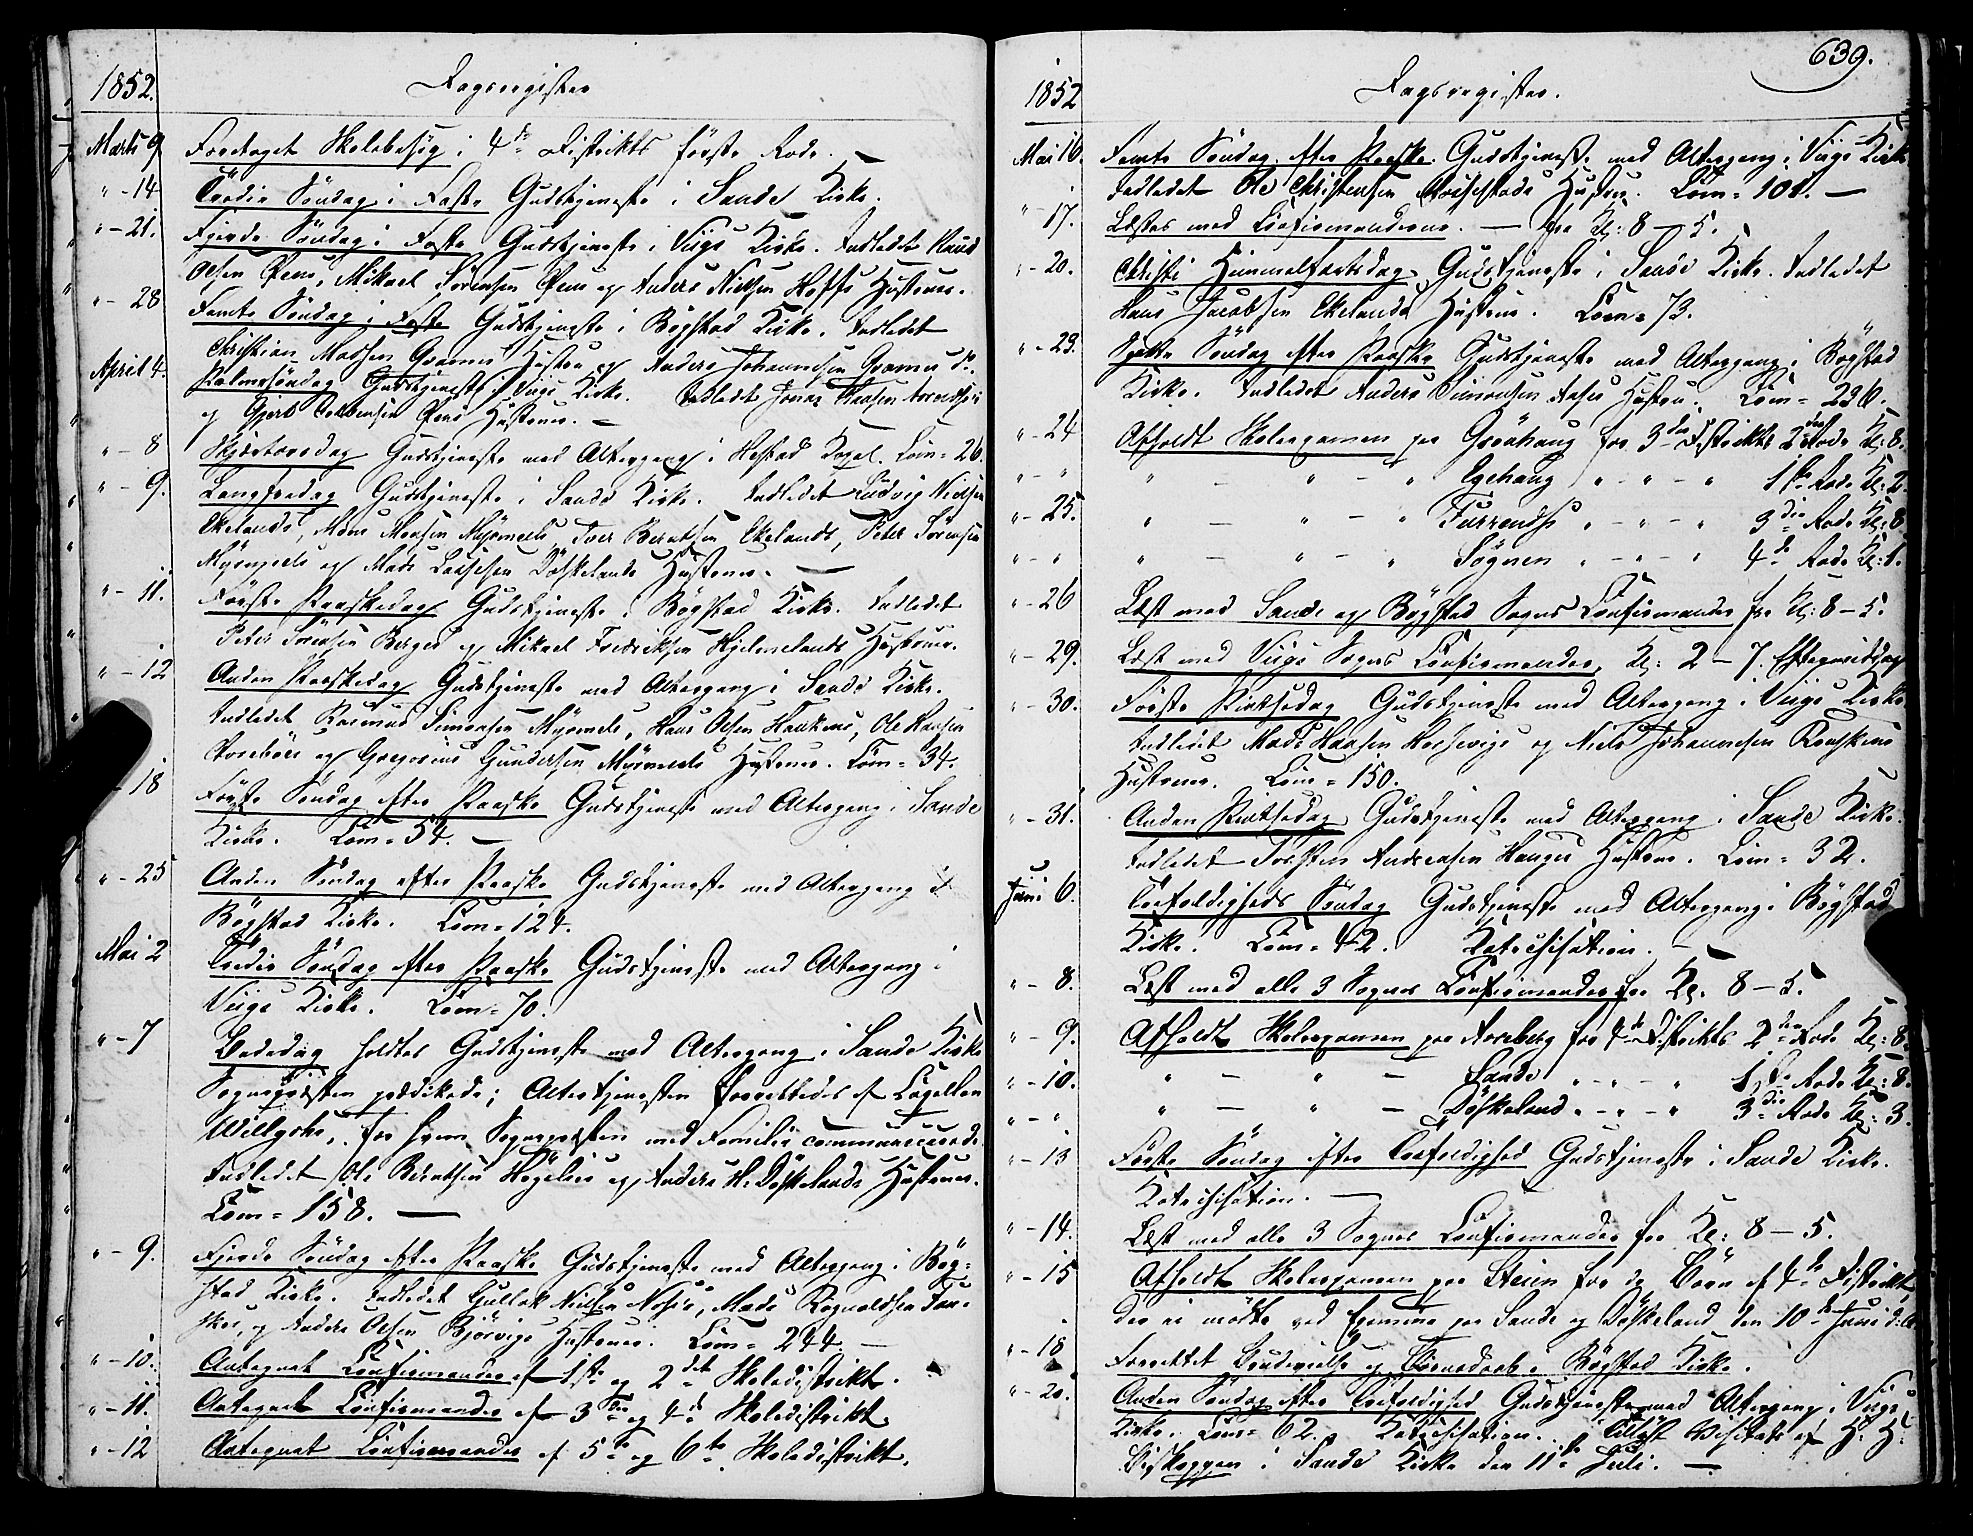 1852.
Dagsregister
Marts 9 Foretaget Skolebesøg i 4de Distrikts første Rode.
" - 14 Tredie Søndag i Faste Gudstjeneste i Sande Kirke.
" - 21. Fjerde Søndag i Faste Gudstjeneste i Viigs Kirke. Indledet Knud
Olsen Øens, Mikael Sørensen Øens og Anders Nielsen Hoffs Hustruer.
" - 28 Femte Søndag i Faste Gudstjeneste i Bøgstad Kirke. Indledet
Christian Madsen Hustru og Anders Johannesen
April 4. Palmesøndag Gudstjeneste i Viigs Kirke. Indledet Jonas
og Hustruer.
" - 8 Skjærtorsdag Gudstjeneste med Altergang i Hestad Kapel. Com = 26.
" - 9. Langfredag Gudstjeneste i Sande Kirke. Indledet Ludvig Nielsen
Ekelands, Mons Monsen Myrmels, Iver Berntsen Ekelands, Peter Sørensen
Myrmels og Mads Døskelands Hustruer.
" - 11. Første Paaskedag Gudstjeneste i Bøgstad Kirke. Indledet
Peter Sørensen Berges og Mikael Fredriksen Hjelmelands Hustruer.
" - 12 Anden Paaskedag Gudstjeneste med Altergang i Sande Kirke.
Indledet Rasmus Simonsen Myrmels, Hans Olsen Haukens, Ole Hansen
og Gregorius Gundersen Myrmels Hustruer. Com = 34.
18 Første Søndag efter Paaske Gudstjeneste med Altergang i Sande
Kirke. Com = 54.
" - 25 Anden Søndag efter Paaske Gudstjeneste med Altergang i
Bøgstad Kirke. Com = 124.
Mai 2 Tredie Søndag efter Paaske Gudstjeneste med Altergang i
Viigs Kirke. Com = 70.
" - 7 Bededag holdtes Gudstjeneste med Altergang i Sande Kirke
Sognepræsten prædikede; Altertjenesten forrettedes af Capellan
Willychs, for hvem Sognepræsten med Familie communicerede.
Indledet Ole Berntsen og Anders H. Døskelands Hustruer.
Com = 158.
" - 9. Fjerde Søndag efter Paaske Gudstjeneste med Altergang i Bøg=
stad Kirke. Indledet Gullak Nielsen Mads Rognaldsen
og Anders Olsen Bjørvigs Hustruer. Com = 244.
" - 10. Antegnet Confirmander af 1ste og 2det Skoledistrikt.
" - 11. Antegnet Confirmander af 3die og 4de Skoledistrikt.
" - 12 Antegnet Confirmander af 5te og 6te Skoledistrikt.
639.
1852
Dagsregister.
Mai 16. Femte Søndag efter Paaske Gudstjeneste med Altergang i Viigs Kirke
Indledet Ole Christensen Hustru. Com = 101.
" - 17. Læstes med Confirmanderne. fra Kl: 8 - 5.
" - 20. Christi Himmelfartsdag Gudstjeneste i Sande Kirke. Indledet
Hans Jacobsen Ekelands Hustru. Com = 73.
" - 23. Sjette Søndag efter Paaske Gudstjeneste med Altergang i Bøgstad
Kirke. Indledet Anders Simonsen Hustru. Com = 226.
" - 24 Afholdt Skoleexamen paa Grønhaug for 3die Distrikts 2den Rode Kl: 8.
" - " " - " - " Egehaug " - " - " 1ste Rode Kl: 2.
" - 25. " - " - " " - " - " 3die Rode Kl: 8
" - " " - " - " Søgnen " - " - " 4de Rode Kl: 1.
" - 26 Læst med Sande og Bøgstad Sognes Confirmander fra Kl: 8 - 5.
" - 29. Læst med Viigs Sogns Confirmander, Kl: 2 - 7. Eftermiddag
" - 30. Første Pintsedag Gudstjeneste med Altergang i Viigs Kirke
Indledet Mads Hansen og Niels Johannesen
Hustruer. Com = 150.
" - 31. Anden Pintsedag Gudstjeneste med Altergang i Sande Kirke.
Indledet Torsten Andersen Hauges Hustru. Com = 32.
Juni 6. Trefoldigheds Søndag Gudstjeneste med Altergang i Bøgstad
Kirke. Com = 42. Katechisation.
" - 8. Læst med alle 3 Sognes Confirmander fra Kl. 8 - 5.
" - 9. Afholdt Skoleexamen paa for 4de Distrikts 2den Rode Kl: 8.
" - 10. " - " - Sande " - " - " 1ste Rode Kl: 8.
" - " " - " - Døskeland " - " - " 3die Rode Kl: 3.
" - 13 Første Søndag efter Trefoldighed Gudstjeneste i Sande Kirke.
Katechisation.
" - 14. Læst med alle 3 Sognes Confirmander fra Kl: 8 - 5.
" - 15 Afholdt Skoleexamen paa Steien for de Børn af 4de Distrikt
der ei mødte ved Examina paa Sande og Døskeland den 10de Juni
" - 18 Forrettet Brudevielse og Barnedaab i Bøgstad Kirke.
" - 20. Anden Søndag efter Trefoldighed Gudstjeneste med Altergang i Viigs
Kirke. Com = 62. Katechisation. Tillyst Visitats af H: H:
Biskoppen i Sande Kirke den 11te Juli.